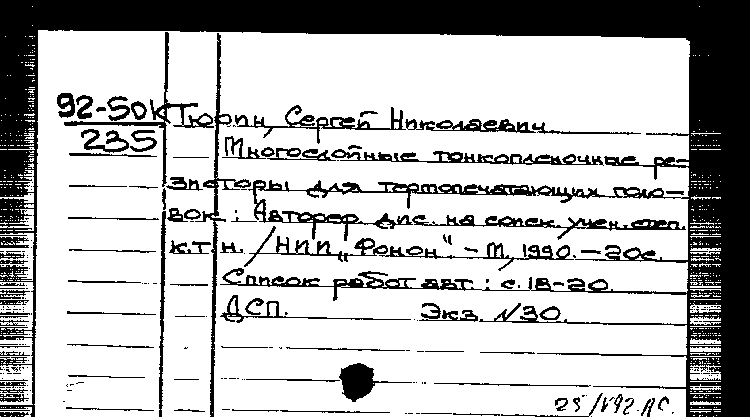 92-5ДК Тюрин, Сергей Николаевич
235
Многослойные тонкопленочные ре-
зисторы для термопечатающих голо-
вок : Автореф. дис. на соиск. учен. степ.
к.т.н. / НПП „Фонон". – М., 1990. – 20с.
Список работ авт. : с. 18-20.
ДСП. Экз. №30.